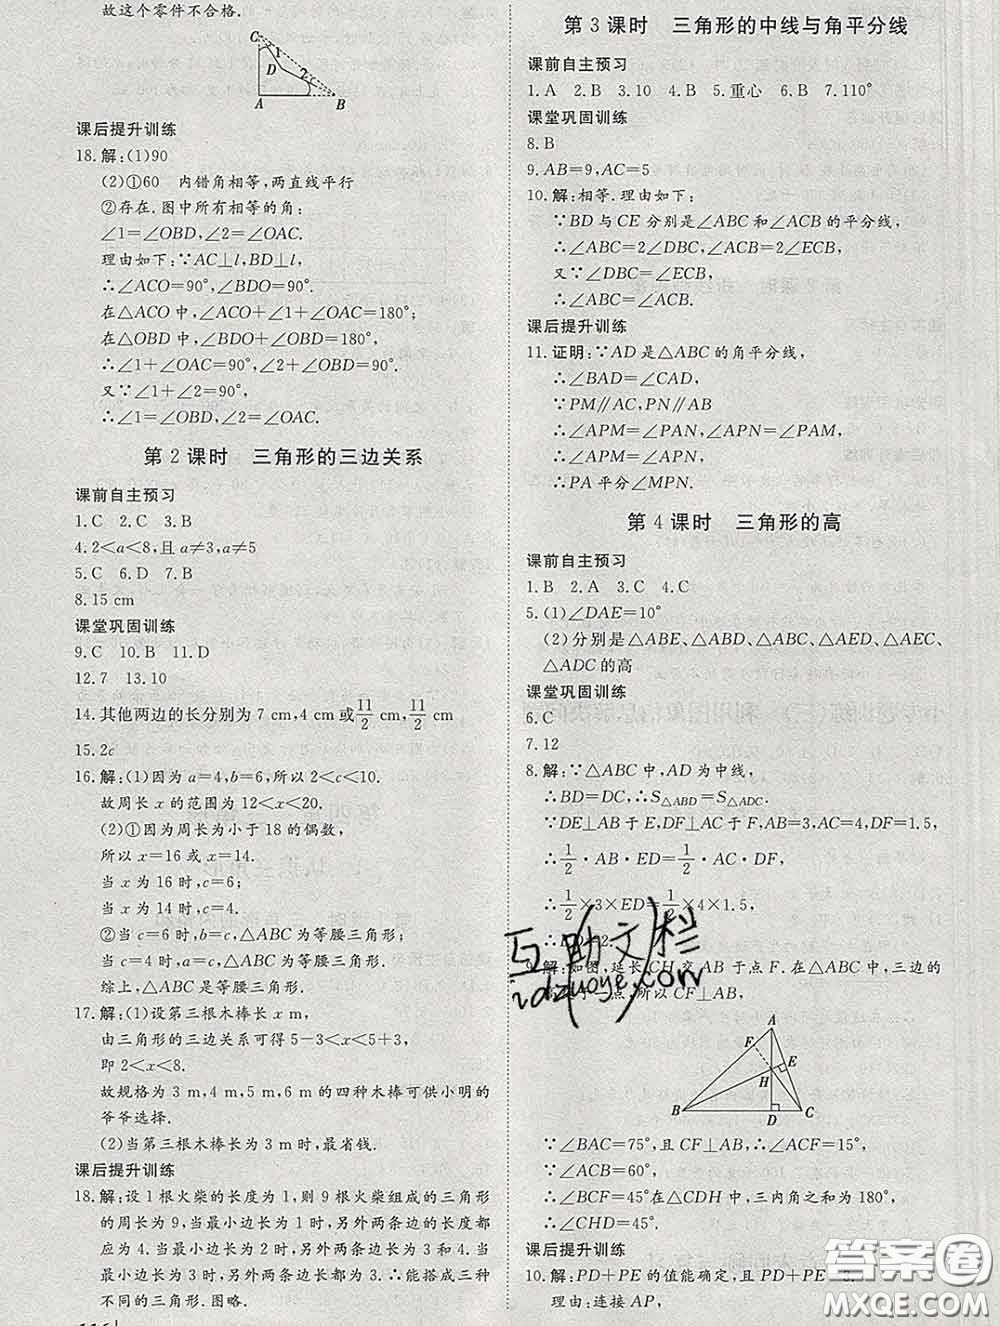 故这个零件不合格.
C
1
D
2
A
B
课后提升训练
18.解:(1)90
(2)①60 内错角相等,两直线平行
②存在.图中所有相等的角:
∠1=∠OBD,∠2=∠OAC.
理由如下:∵AC⊥l,BD⊥l,
∴∠ACO=90°,∠BDO=90°,
在△ACO中,∠ACO+∠1+∠OAC=180°;
在△OBD中,∠2+∠BDO+∠OBD=180°,
∴∠1+∠OAC=90°,∠2+∠OBD=90°.
又∵∠1+∠2=90°,
∴∠1=∠OBD,∠2=∠OAC.
第2课时 三角形的三边关系
课前自主预习
1.C 2.C 3.B
4.2<a<8,且a≠3,a≠5
5.C 6.D 7.B
8.15 cm
课堂巩固训练
9.C 10.B 11.D
12.7 13.10
14.其他两边的长分别为7 cm,4 cm或11/2 cm,11/2 cm
15.2c
16.解:(1)因为a=4,b=6,所以2<c<10.
故周长x的范围为12<x<20.
(2)①因为周长为小于18的偶数,
所以x=16或x=14.
当x为16时,c=6;
当x为14时,c=4.
②当c=6时,b=c,△ABC为等腰三角形;
当c=4时,a=c,△ABC为等腰三角形.
综上,△ABC是等腰三角形.
17.解:(1)设第三根木棒长x m,
由三角形的三边关系可得5-3<x<5+3,
即2<x<8.
故规格为3 m,4 m,5 m,6 m的四种木棒可供小明的
爷爷选择.
(2)当第三根木棒长为3 m时,最省钱.
课后提升训练
18.解:设1根火柴的长度为1,则9根火柴组成的三角形
的周长为9,当最小边长为1时,另外两条边的长度都
应为4.当最小边长为2时,另外两边长为3和4.当最
小边长为3时,另外两边长为3和3.∴能搭成三种
不同的三角形.图略.
第3课时 三角形的中线与角平分线
课前自主预习
1.A 2.B 3.10 4.B 5.重心 6.B 7.110°
课堂巩固训练
8.B
9.AB=9,AC=5
10.解:相等.理由如下:
∵BD与CE分别是∠ABC和∠ACB的平分线,
∴∠ABC=2∠DBC,∠ACB=2∠ECB,
又∵∠DBC=∠ECB,
∴∠ABC=∠ACB.
课后提升训练
11.证明:∵AD是△ABC的角平分线,
∴∠BAD=∠CAD,
∵PM∥AC,PN∥AB
∴∠APM=∠PAN,∠APN=∠PAM,
∴∠APM=∠APN,
∴PA平分∠MPN.
第4课时 三角形的高
课前自主预习
1.B 2.A 3.C 4.C
5.(1)∠DAE=10°
(2)分别是△ABE、△ABD、△ABC、△AED、△AEC、
△ADC的高
课堂巩固训练
6.C
7.12
8.解:∵△ABC中,AD为中线,
∴BD=DC,∴S△ABD=S△ADC.
∵DE⊥AB于E,DF⊥AC于F,AB=3,AC=4,DF=1.5,
∴1/2·AB·ED=1/2·AC·DF,
∴1/2×3×ED=1/2×4×1.5,
互助文档
idzuoye.com
9.解:如图,延长CH交AB于点F.在△ABC中,三边的
点,所以CF⊥AB,
A
F
E
H
B
D
C
∵∠BAC=75°,且CF⊥AB,∴∠ACF=15°,
∵∠ACB=60°,
∴∠BCF=45°在△CDH中,三内角之和为180°,
∴∠CHD=45°.
课后提升训练
10.解:PD+PE的值能确定,且PD+PE=
理由:连接AP,
答案圈
MXQE.COM